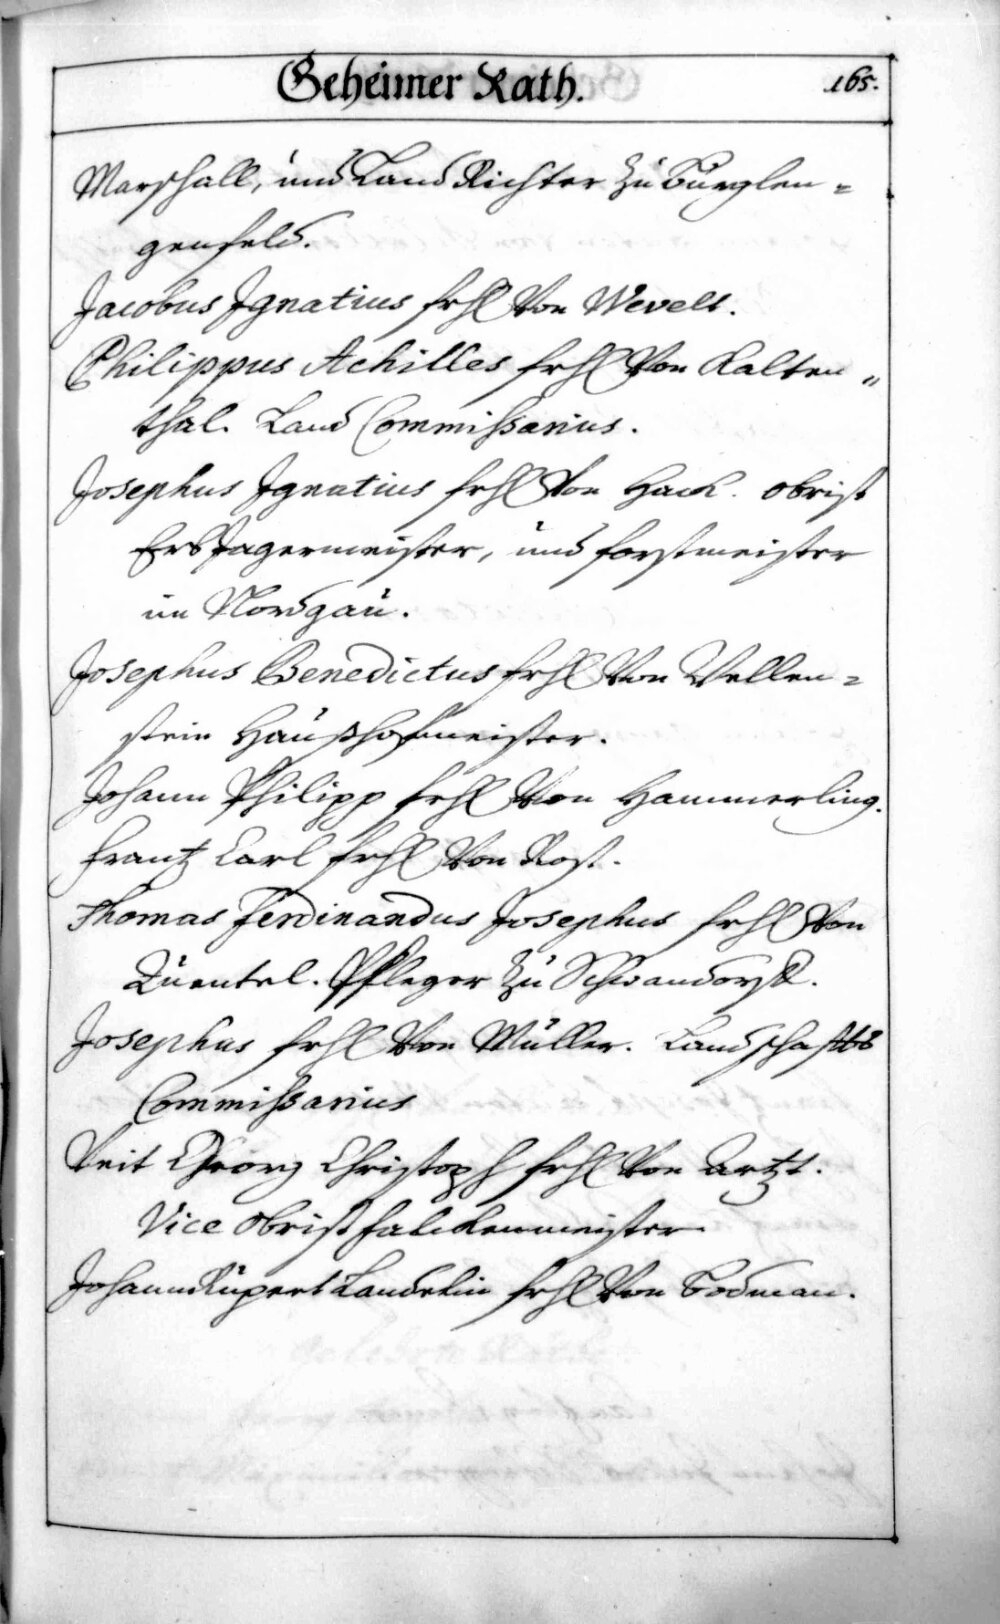 Geheimer Rath.
165.
Marschall, und Land Richter zu Burglen=
genfeld.
Jacobus Ignatius frhl von Wevelt.
Philippus Achilles frhl von Kalten„
thal. Land Commißarius.
Josephus Ignatius frhl von Hack. obrist
Erb Jagermeister, und forstmeister
im Nordgau.
Josephus Benedictus frhl von Wellen=
stein Haußhofmeister.
Johann Philipp frhl von Hammerling.
frantz Carl frhl von Rost.
Thomas Ferdinandus Josephus frhl von
Quentel. Pfleger zu Schwandorff.
Josephus frhl von Müller. Landschaffts
Commißarius
Veit Georg Christoph frhl von Artzt.
Vice obrist falckenmeister
Johann Rupert Landelin frhl von Bodman.